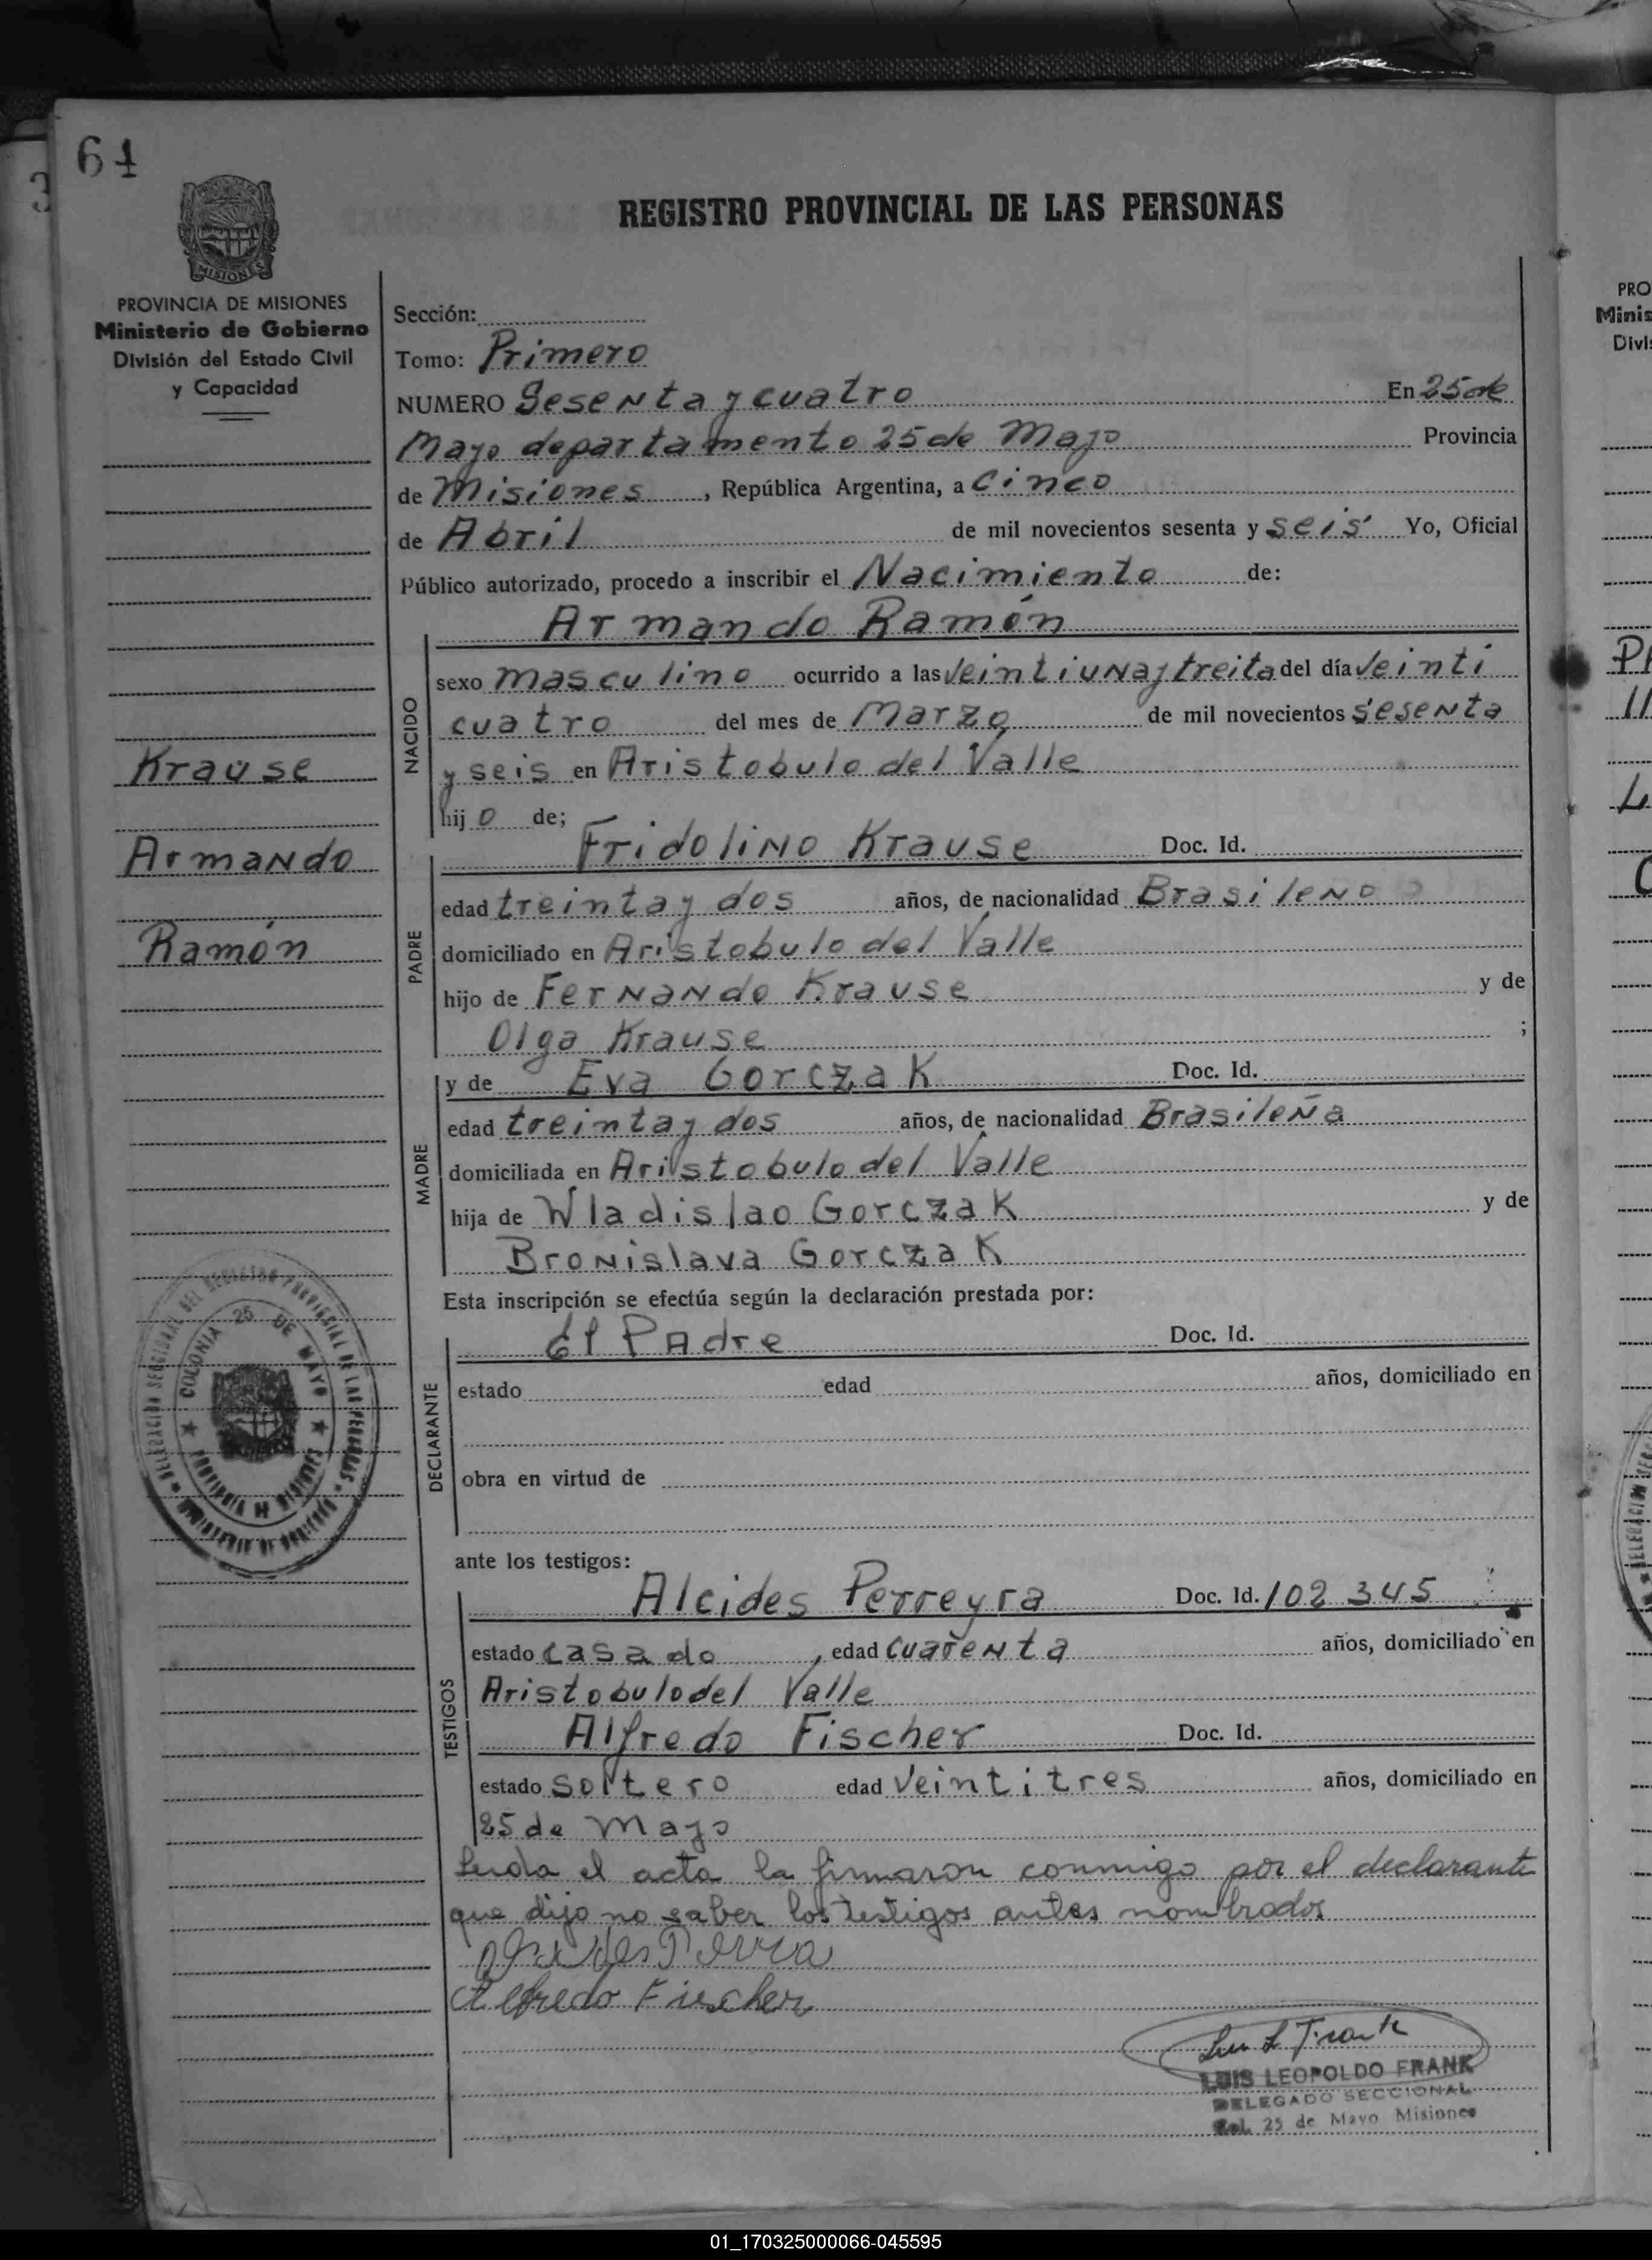 64
REGISTRO PROVINCIAL DE LAS PERSONAS
MISIONES
PROVINCIA DE MISIONES
Ministerio de Gobierno
División del Estado Civil
y Capacidad
Krause
Armando
Ramón
Sección:
Tomo: Primero
NUMERO Sesenta y cuatro En 25 de
Mayo departamento 25 de Mayo Provincia
de Misiones, República Argentina, a Cinco
de Abril de mil novecientos sesenta y seis Yo, Oficial
Público autorizado, procedo a inscribir el Nacimiento de:
NACIDO
Armando Ramón
sexo masculino ocurrido a las veintiuna y treita del día veinti
cuatro del mes de Marzo de mil novecientos sesenta
y seis en Aristobulo del Valle
hijo de;
PADRE
Fridolino Krause Doc. Id.
edad treinta y dos años, de nacionalidad Brasileno
domiciliado en Aristobulo del Valle
hijo de Fernando Krause y de
Olga Krause ;
MADRE
y de Eva Gorczak Doc. Id.
edad treinta y dos años, de nacionalidad Brasileña
domiciliada en Aristobulo del Valle
hija de Wladislao Gorczak y de
Bronislava Gorczak
Esta inscripción se efectúa según la declaración prestada por:
DECLARANTE
El Padre Doc. Id.
estado edad años, domiciliado en
obra en virtud de
ante los testigos:
TESTIGOS
Alcides Perreyra Doc. Id. 102345
estado casado, edad cuarenta años, domiciliado en
Aristobulo del Valle
Alfredo Fischer Doc. Id.
estado soltero edad veintitres años, domiciliado en
25 de Mayo
Leida el acta la firmaron conmigo por el declarante
que dijo no saber los testigos antes nombrados
Alfredo Fischer
COLONIA 25 DE MAYO
PROVINCIA DE MISIONES
LUIS LEOPOLDO FRANK
DELEGADO SECCIONAL
Col. 25 de Mayo Misiones
PRO
Minis
Divi
01_170325000066-045595